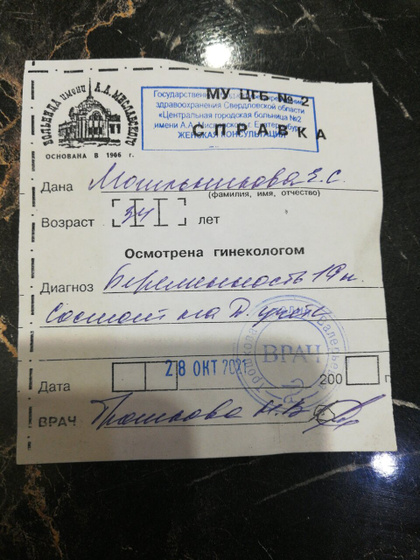 БОЛЬНИЦА имени А.А. МИСЛАВСКОГО
ОСНОВАНА В 1966 г.
МУ ЦГБ № 2
Государственное
здравоохранения Свердловской области
«Центральная городская больница №2
имени А.А. Екатеринбург
ЖЕНСКАЯ КОНСУЛЬТАЦИЯ
СПРАВКА
Дана Е.С.
(фамилия, имя, отчество)
Возраст 34 лет
Осмотрена гинекологом
Диагноз Беременность 19 н.
Состоит на Д. учете
ВРАЧ
Дата 28 ОКТ 2021 200 г.
ВРАЧ